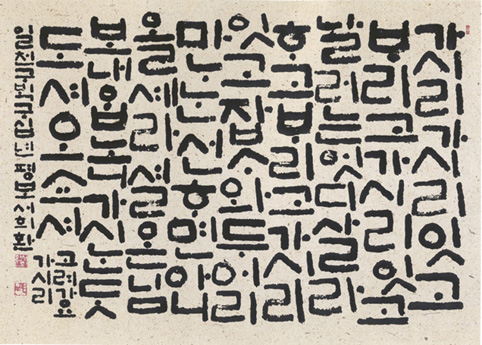 가시리가시리잇고
ᄇᆞ리고가시리잇고
날러는엇디살라
ᄒᆞ고ᄇᆞ리고가시리
잇고잡ᄉᆞ와두어리
만ᄂᆞᆫ선ᄒᆞ면아니
올셰라셜온님
보내ᄋᆞᆸ노니가시ᄂᆞᆫᄃᆞᆺ
도셔오쇼셔
고려가요
가시리
일천구백구십년평보서희환